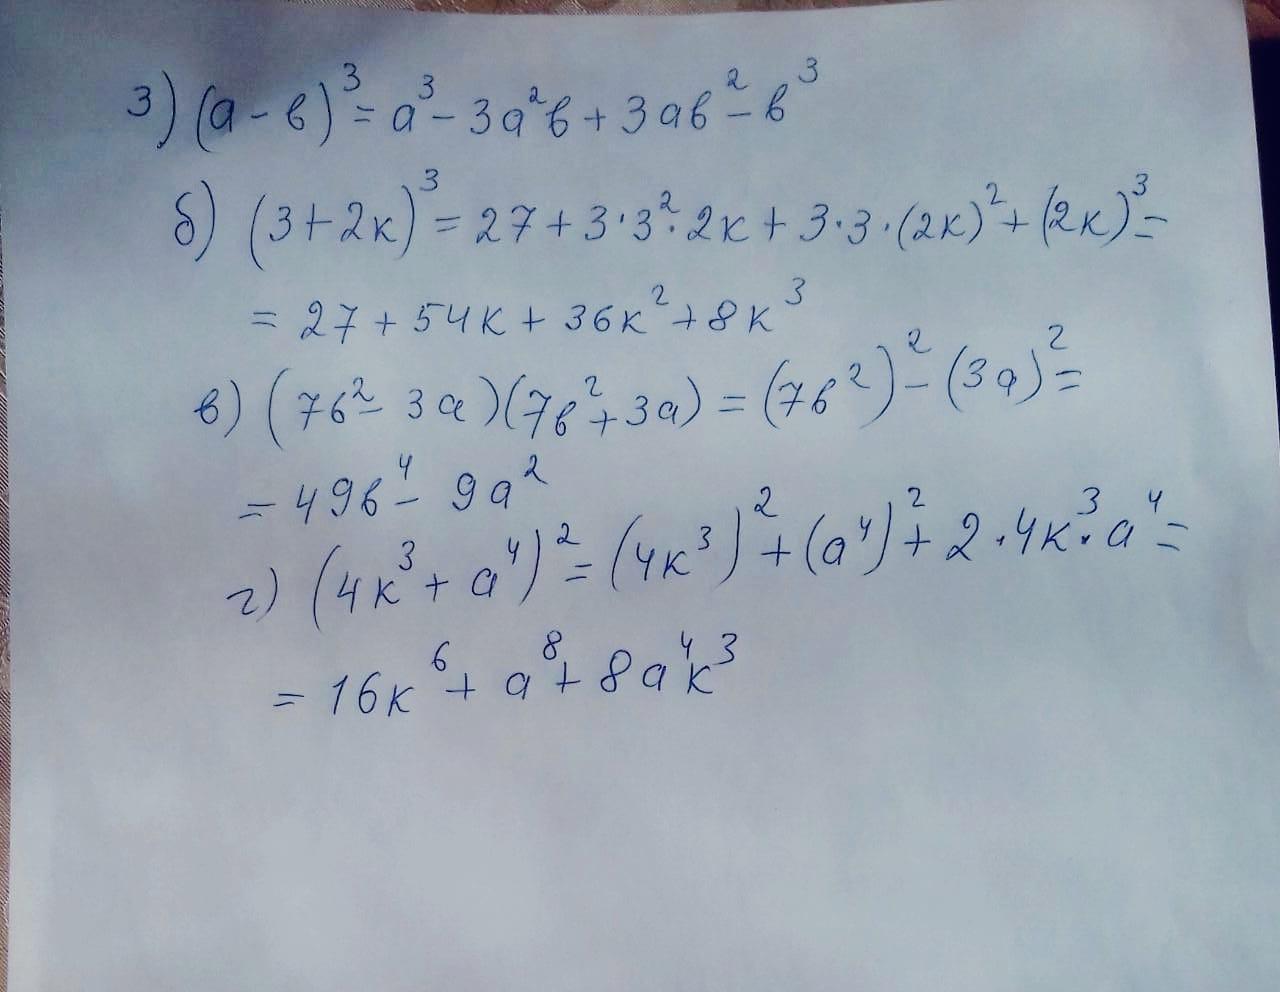 3) (a - b)³ = a³ - 3a²b + 3ab² - b³
б) (3 + 2к)³ = 27 + 3·3²·2к + 3·3·(2к)² + (2к)³ =
= 27 + 54к + 36к² + 8к³
в) (7b² - 3a)(7b² + 3a) = (7b²)² - (3a)² =
= 49b⁴ - 9a²
г) (4к³ + a⁴)² = (4к³)² + (a⁴)² + 2·4к³·a⁴ =
= 16к⁶ + a⁸ + 8a⁴к³